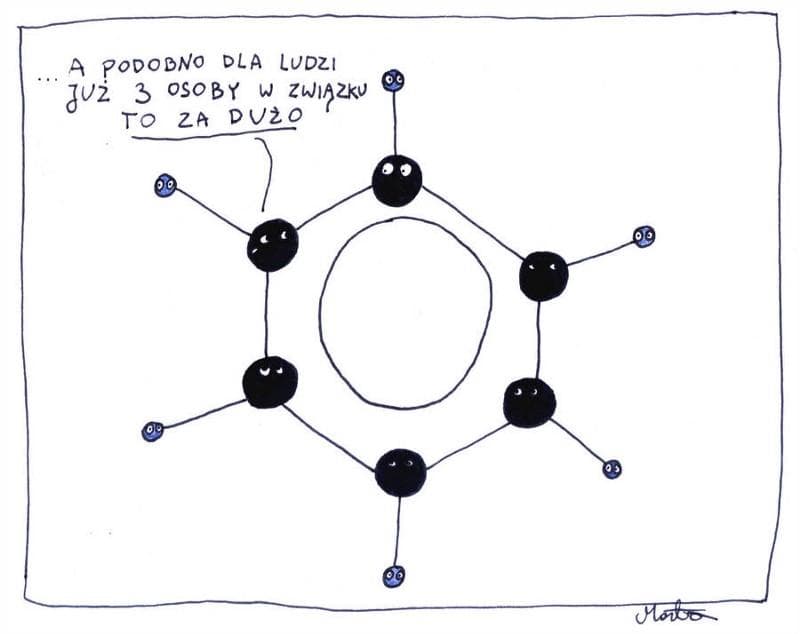 ... A PODOBNO DLA LUDZI
JUŻ 3 OSOBY W ZWIĄZKU
TO ZA DUŻO